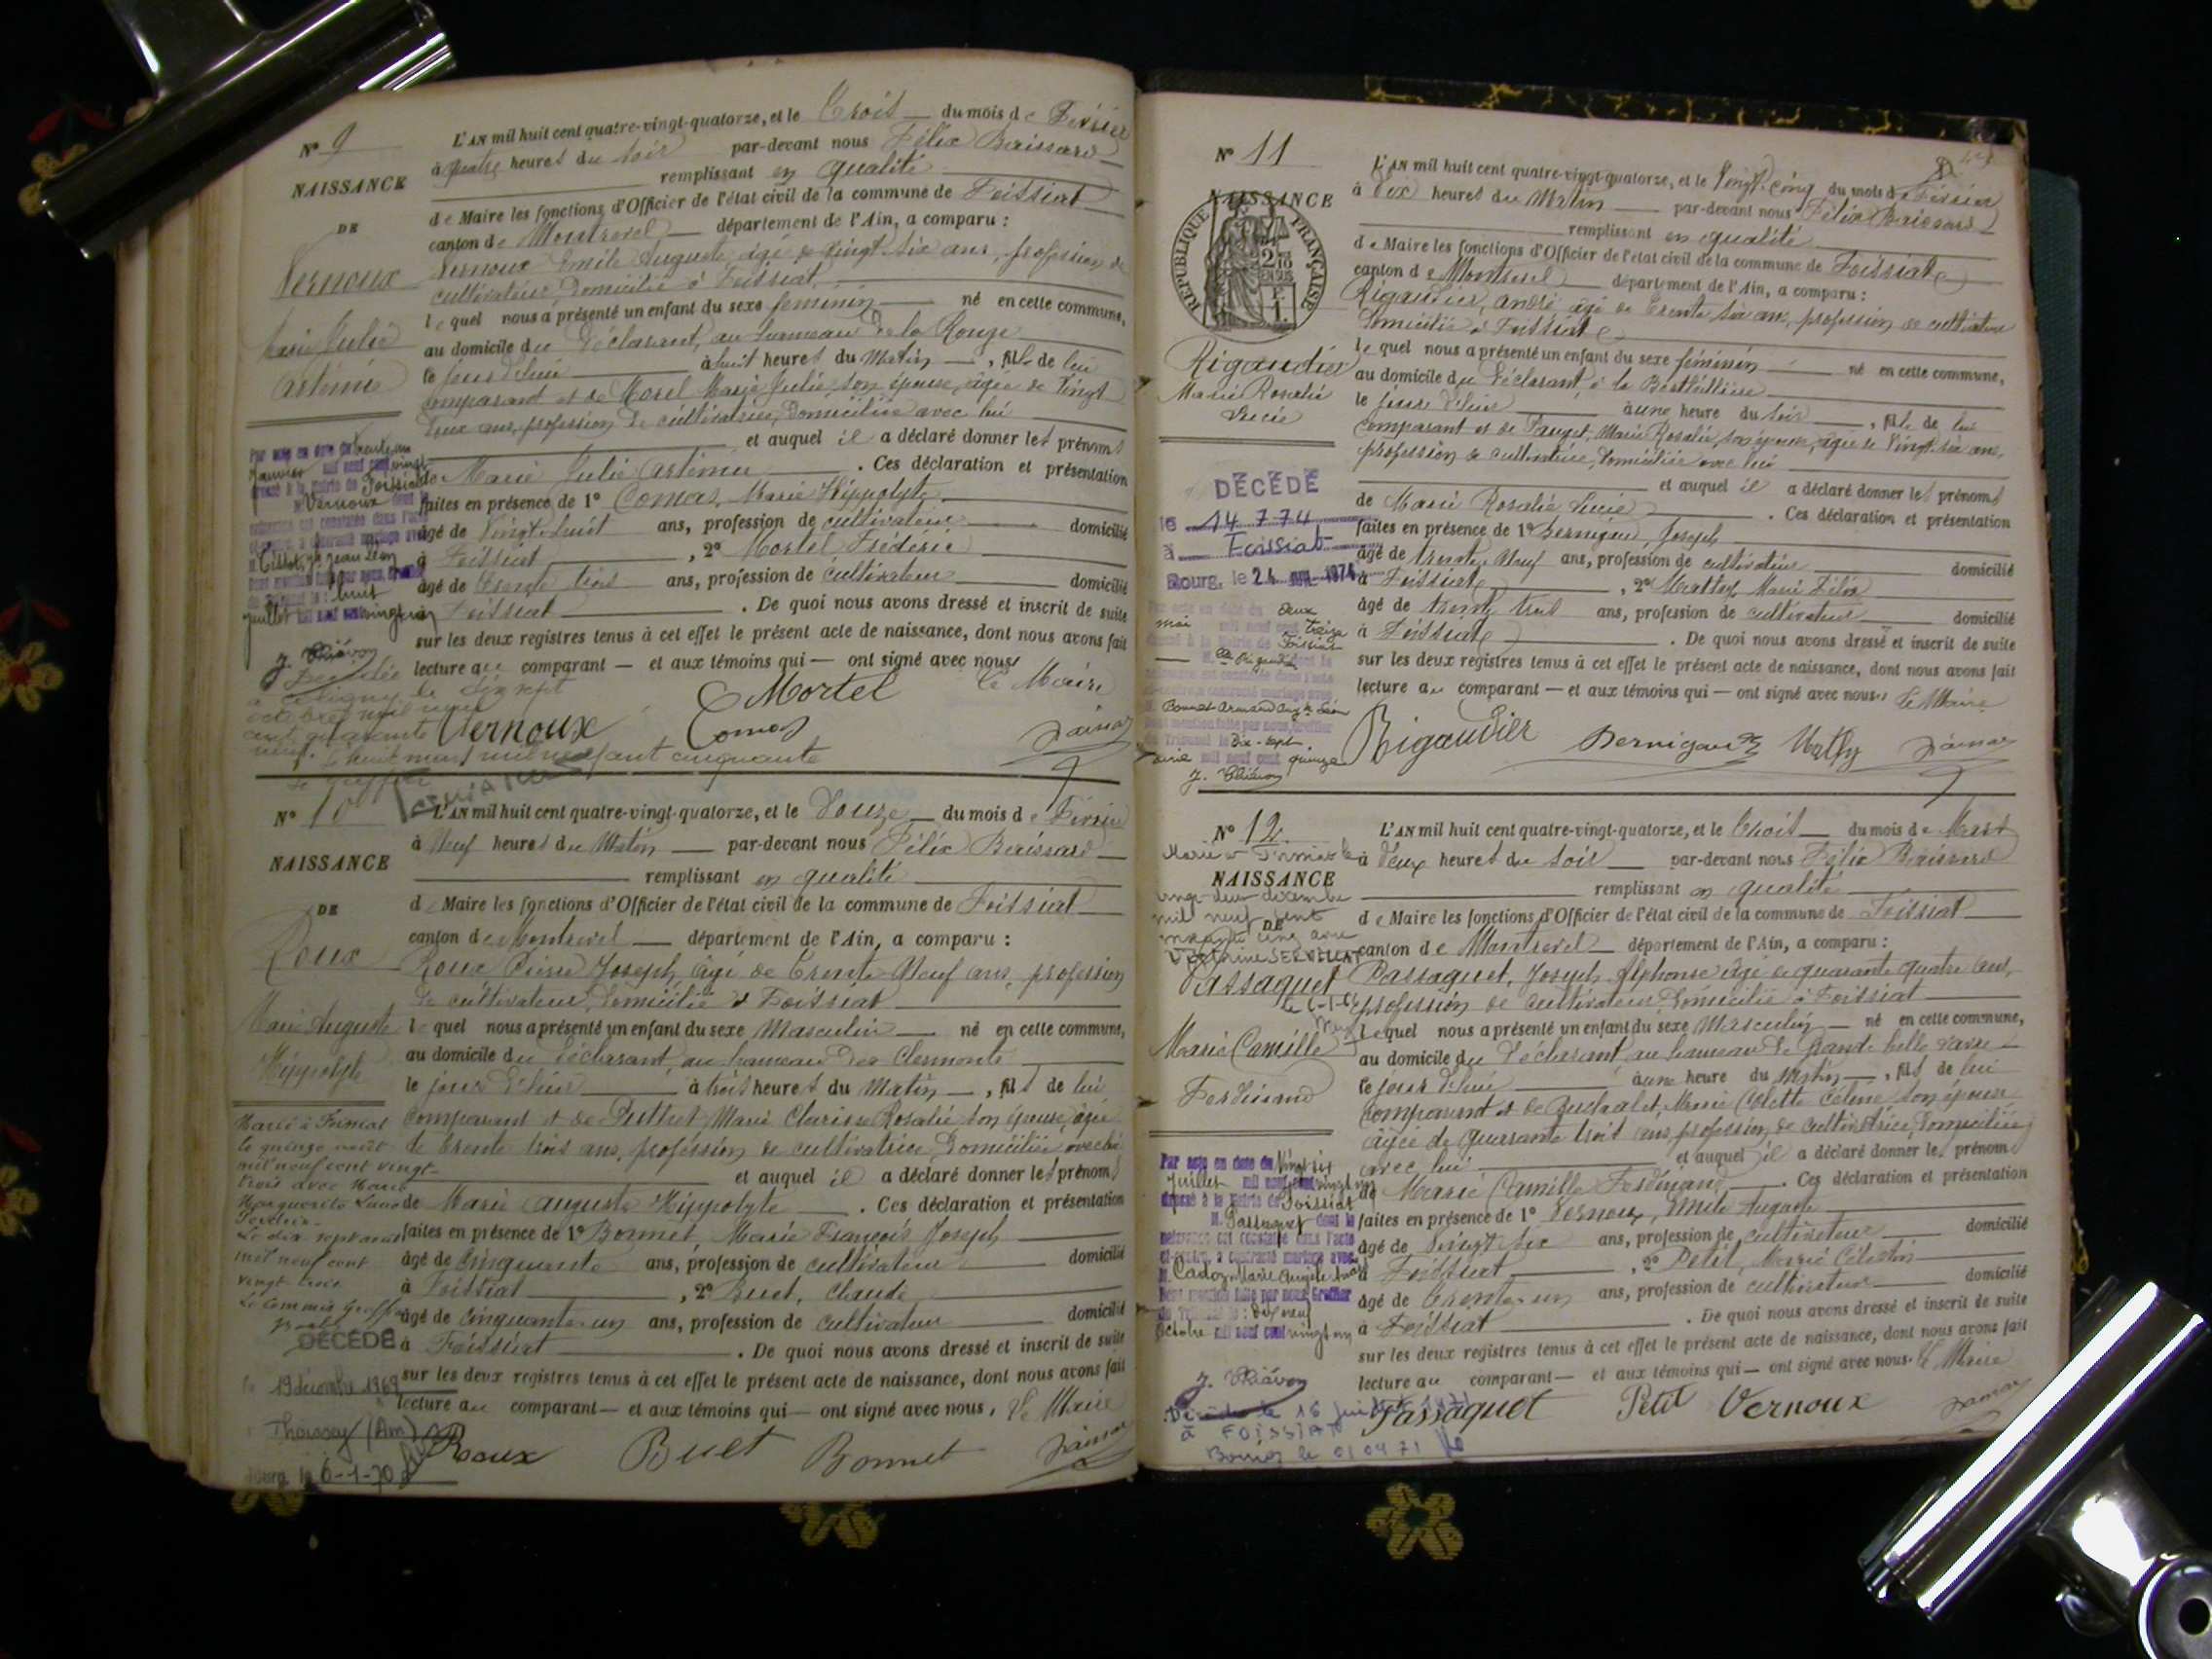 N° 9
NAISSANCE
DE
Vernoux
Marie Julie
Artémie
L'AN mil huit cent quatre-vingt-quatorze, et le Trois du mois de Février
à quatre heures du soir par-devant nous Félix Baissard
remplissant en qualité
de Maire les fonctions d'Officier de l'état civil de la commune de Foissiat
canton de Montrevel département de l'Ain, a comparu :
Vernoux Emile Auguste, âgé de vingt six ans, profession de
cultivateur domicilié à Foissiat
lequel nous a présenté un enfant du sexe féminin né en cette commune,
au domicile du déclarant, au hameau de la Rouge
le jour d'hui à huit heures du Matin, fille de lui
comparant et de Morel Marie Julie, son épouse, âgée de vingt
deux ans, profession de cultivatrice, domiciliée avec lui
et auquel il a déclaré donner les prénoms
de Marie Julie Artémie. Ces déclaration et présentation
faites en présence de 1° Comas, Marie Hippolyte
âgé de vingt huit ans, profession de cultivateur domicilié
à Foissiat, 2° Mortel Frédéric
âgé de trente trois ans, profession de cultivateur domicilié
à Foissiat. De quoi nous avons dressé et inscrit de suite
sur les deux registres tenus à cet effet le présent acte de naissance, dont nous avons fait
lecture au comparant et aux témoins qui ont signé avec nous, le Maire
Par acte en date du trente un
Janvier mil neuf cent vingt
dressé à la Mairie de Foissiat
Vernoux dont la
naissance est constatée dans l'acte
ci-contre, a contracté mariage avec
juillet mil neuf cent vingt un
J. Chiévon
Décédée
octobre mil neuf
cent quarante
neuf. le huit mars mil neuf cent cinquante
Le greffier
Vernoux Comas Mortel
N° 10
NAISSANCE
DE
Roux
Marie Auguste
Hippolyte
L'AN mil huit cent quatre-vingt-quatorze, et le Douze du mois de Février
à Neuf heures du Matin par-devant nous Félix Baissard
remplissant en qualité
de Maire les fonctions d'Officier de l'état civil de la commune de Foissiat
canton de Montrevel département de l'Ain, a comparu :
Roux Pierre Joseph, âgé de trente Neuf ans, profession
de cultivateur, domicilié à Foissiat
lequel nous a présenté un enfant du sexe Masculin né en cette commune,
au domicile du déclarant, au hameau des Clermonts
le jour d'hui à trois heures du Matin, fils de lui
comparant et de Marie Clarisse Rosalie son épouse, âgée
de trente trois ans, profession de cultivatrice, domiciliée avec lui
et auquel il a déclaré donner les prénoms
de Marie Auguste Hippolyte. Ces déclaration et présentation
faites en présence de 1° Bonnet, Marie François Joseph
âgé de cinquante ans, profession de cultivateur domicilié
à Foissiat, 2° Buet, Claude
âgé de cinquante-un ans, profession de cultivateur domicilié
à Foissiat. De quoi nous avons dressé et inscrit de suite
sur les deux registres tenus à cet effet le présent acte de naissance, dont nous avons fait
lecture au comparant et aux témoins qui ont signé avec nous, le Maire
Marié à
le quinze août
mil neuf cent vingt
trois avec Marie
Marguerite
Le dix sept août
mil neuf cent
vingt trois
Le Commis Greffier
DÉCÉDÉ
le 19 décembre 1969
à Thoissey (Ain)
Bourg, le 6-1-70
Roux Buet Bonnet
N° 11
NAISSANCE
RÉPUBLIQUE FRANÇAISE
Rigaudier
Marie Rosalie
Lucie
L'AN mil huit cent quatre-vingt-quatorze, et le Vingt-cinq du mois de Février
à Dix heures du Matin par-devant nous Félix Baissard
remplissant en qualité
de Maire les fonctions d'Officier de l'état civil de la commune de Foissiat
canton de Montrevel département de l'Ain, a comparu :
Rigaudier, André, âgé de trente six ans, profession de cultivateur
domicilié à Foissiat
lequel nous a présenté un enfant du sexe féminin né en cette commune,
au domicile du déclarant, à la
le jour d'hier à une heure du soir, fille de lui
comparant et de Pauget, Marie Rosalie, son épouse, âgée de vingt six ans,
profession de cultivatrice, domiciliée avec lui
et auquel il a déclaré donner les prénoms
de Marie Rosalie Lucie. Ces déclaration et présentation
faites en présence de 1° Bernigaud, Joseph
âgé de trente Neuf ans, profession de cultivateur domicilié
à Foissiat, 2° Marie Félix
âgé de trente trois ans, profession de cultivateur domicilié
à Foissiat. De quoi nous avons dressé et inscrit de suite
sur les deux registres tenus à cet effet le présent acte de naissance, dont nous avons fait
lecture au comparant et aux témoins qui ont signé avec nous, le Maire
DÉCÉDÉ
le 14 7 74
à Foissiat
Bourg, le 24 1974
Par acte en date du deux
mai mil neuf cent treize
dressé à la Mairie de Foissiat
Rigaudier dont la
naissance est constatée dans l'acte
ci-contre, a contracté mariage avec
M. Bonnet Armand
Dont mention faite par nous, Greffier
du Tribunal le Dix-sept
mil neuf cent quinze
J. Chiévon
Rigaudier Bernigaud
N° 12
NAISSANCE
DE
Passaquet
Marie Camille
Ferdinand
L'AN mil huit cent quatre-vingt-quatorze, et le trois du mois de Mars
à deux heures du soir par-devant nous Félix Baissard
remplissant en qualité
de Maire les fonctions d'Officier de l'état civil de la commune de Foissiat
canton de Montrevel département de l'Ain, a comparu :
Passaquet, Joseph Alphonse âgé de quarante quatre ans,
profession de cultivateur domicilié à Foissiat
lequel nous a présenté un enfant du sexe Masculin né en cette commune,
au domicile du déclarant au hameau de Grande
le jour d'hui à une heure du Matin, fils de lui
comparant et de Marie Colette Céline son épouse
âgée de quarante trois ans, profession de cultivatrice, domiciliée
avec lui et auquel il a déclaré donner les prénoms
de Marie Camille Ferdinand. Ces déclaration et présentation
faites en présence de 1° Vernoux, Emile Auguste
âgé de vingt six ans, profession de cultivateur domicilié
à Foissiat, 2° Petit, Marie Célestin
âgé de trente-un ans, profession de cultivateur domicilié
à Foissiat. De quoi nous avons dressé et inscrit de suite
sur les deux registres tenus à cet effet le présent acte de naissance, dont nous avons fait
lecture au comparant et aux témoins qui ont signé avec nous, le Maire
Marié à
vingt deux décembre
mil neuf cent
cinq avec
Par acte en date du vingt six
Juillet mil neuf cent vingt un
dressé à la Mairie de Foissiat
M. Passaquet dont la
naissance est constatée dans l'acte
ci-contre, a contracté mariage avec
M. Cadoz Marie Angèle
Dont mention faite par nous, Greffier
du Tribunal le : dix neuf
Octobre mil neuf cent vingt un
J. Chiévon
Décédé le 16
à FOISSIAT
le 01 04 71
Passaquet Petit Vernoux